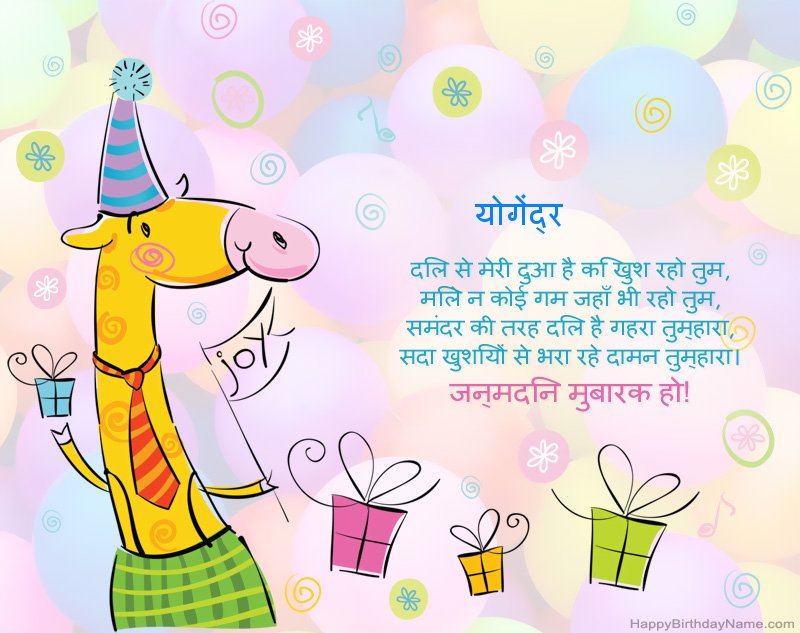 योगेंद्र
दिल से मेरी दुआ है कि खुश रहो तुम,
मिले न कोई गम जहाँ भी रहो तुम,
समंदर की तरह दिल है गहरा तुम्हारा,
सदा खुशियों से भरा रहे दामन तुम्हारा।
जन्मदिन मुबारक हो!
joy
HappyBirthdayName.com